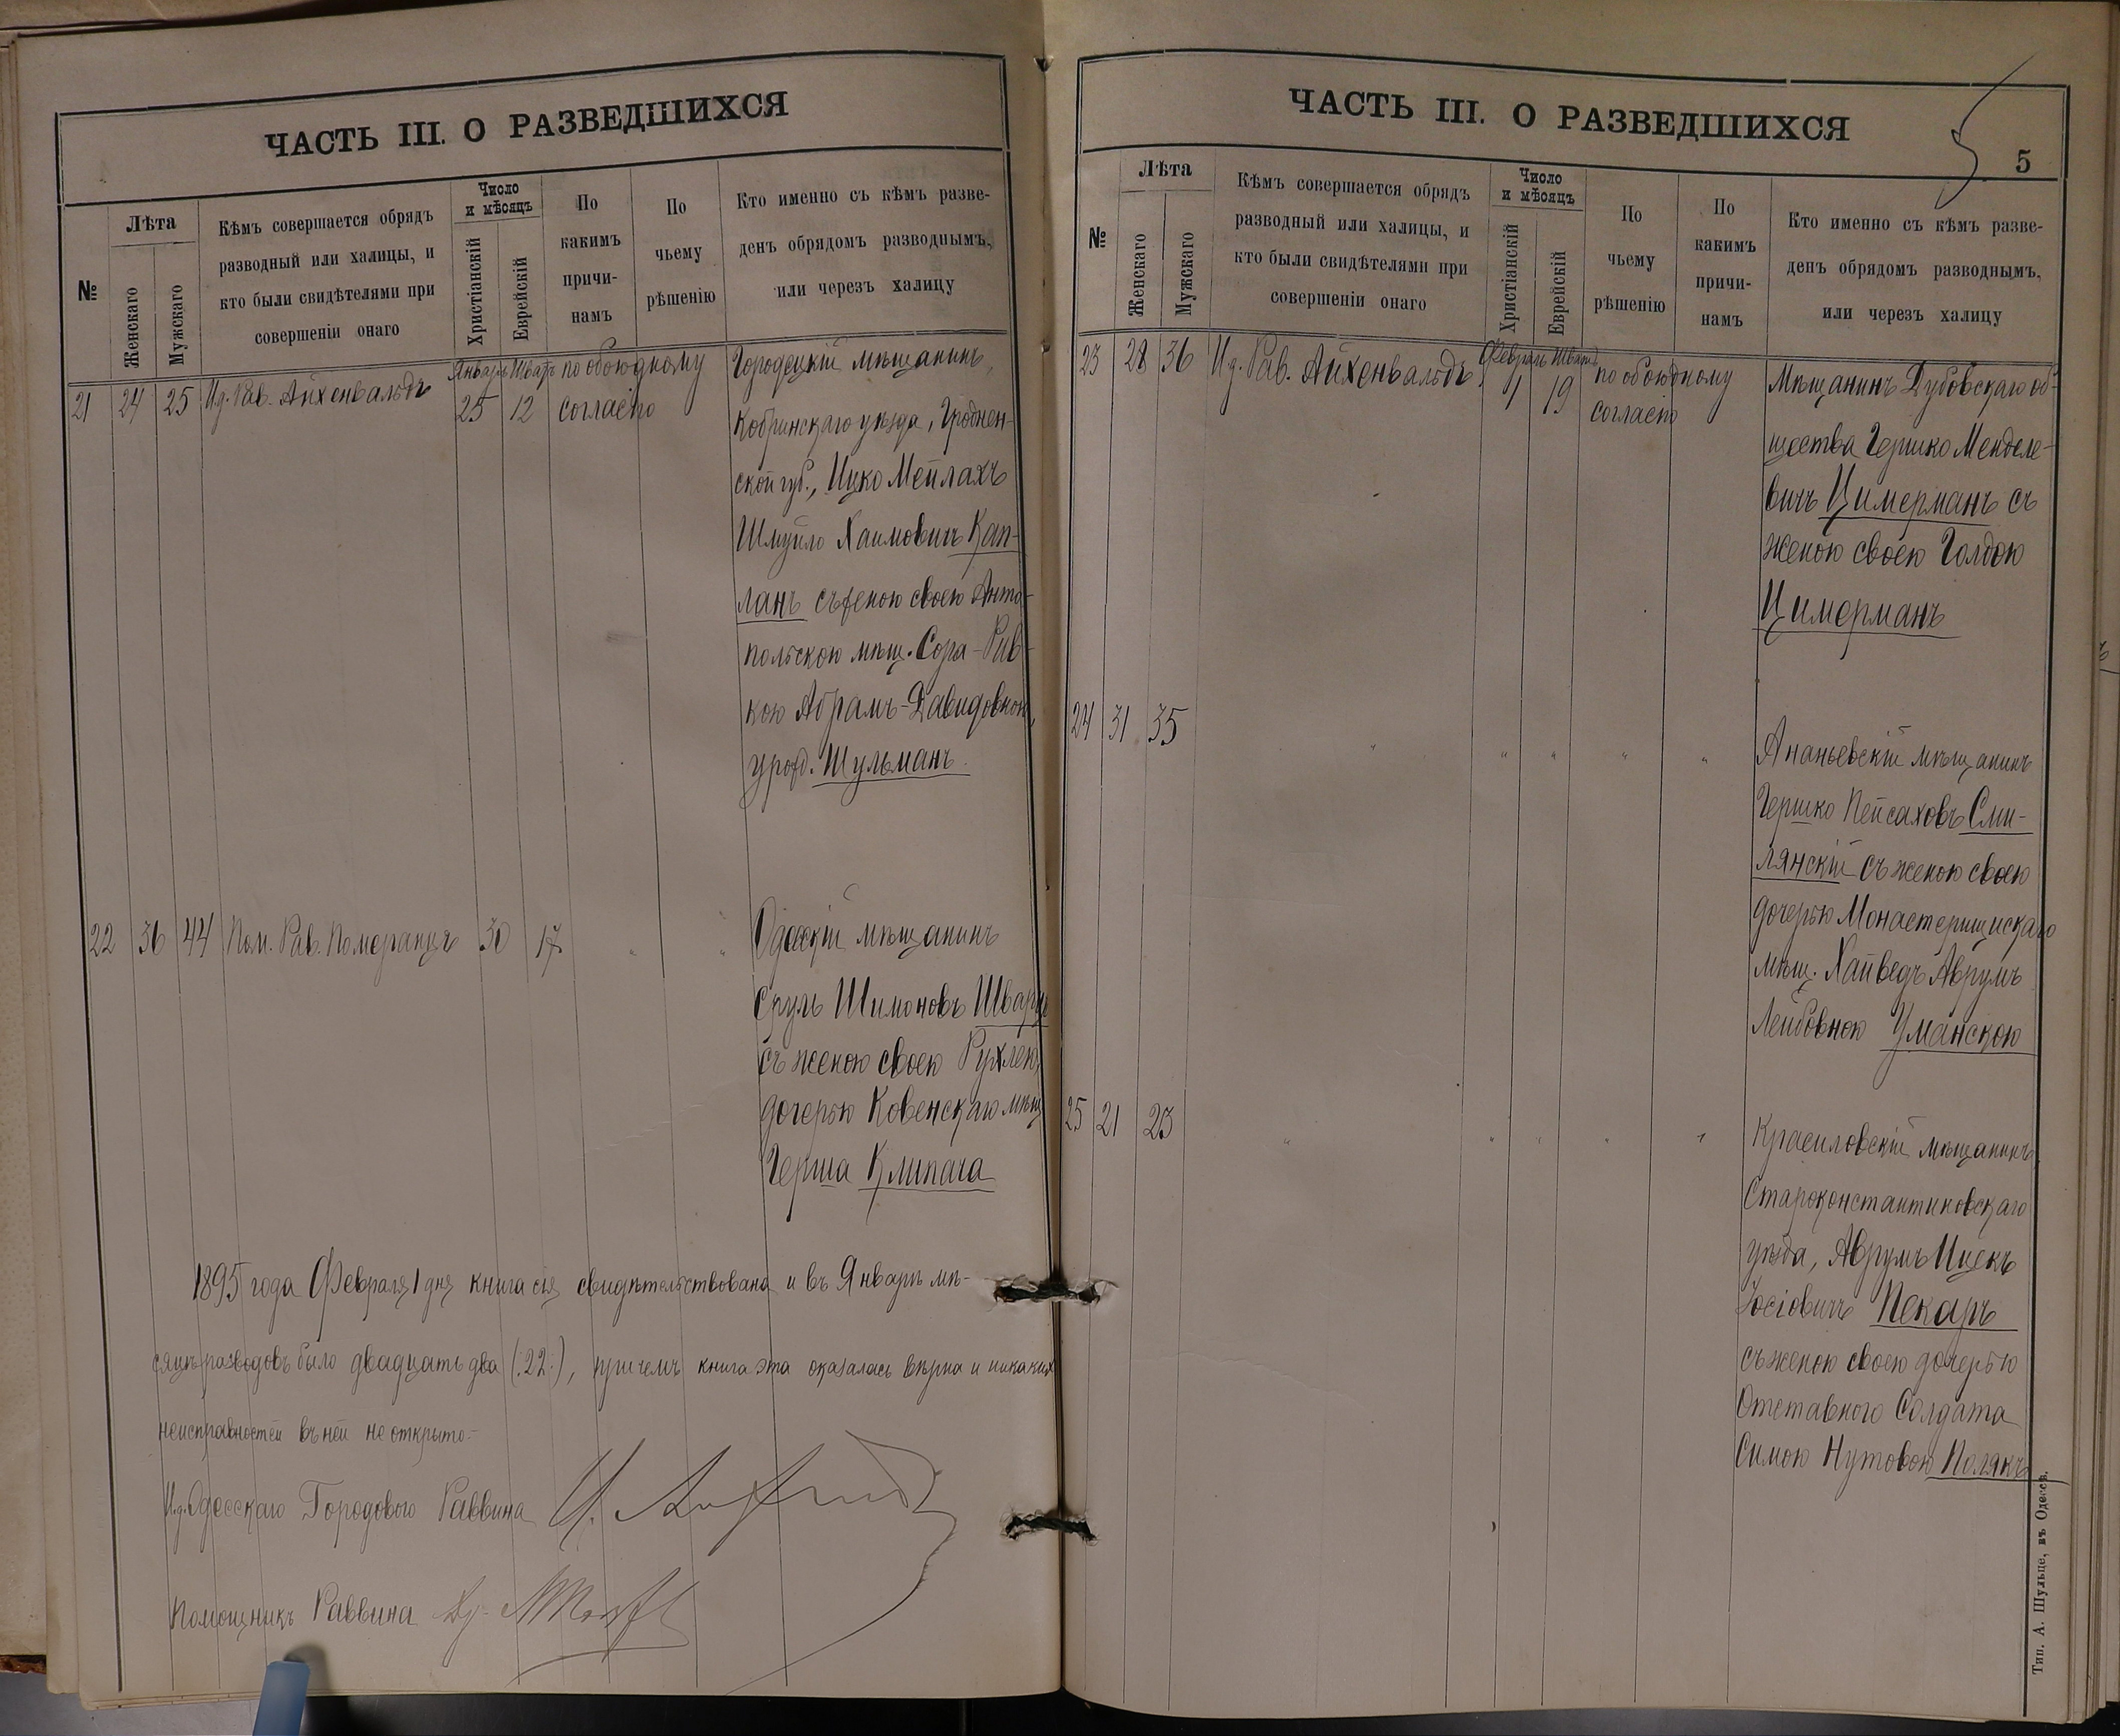 ЧАСТЬ III. О РАЗВЕДШИХСЯ
№
Лѣта
Женскаго
Мужскаго
Кѣмъ совершается обрядъ
разводный или халицы, и
кто были свидѣтелями при
совершеніи онаго
Число
и мѣсяцъ
Христіанскій
Еврейскій
По
какимъ
причи-
намъ
По
чьему
рѣшенію
Кто именно съ кѣмъ разве-
денъ обрядомъ разводнымъ,
или черезъ халицу
21 24 25 Ид. Рав. Айхенвальдъ
Январь Шватъ
25 12
по обоюдному
согласію
Городецкій мѣщанинъ,
Кобринскаго уѣзда, Гроднен-
ской губ., Ицко Мейлахъ
Шмуйло Хаимовичъ Кап-
ланъ съ женою своею Анто-
польскою мѣщ. Сора-Рив-
кою Абрамъ-Давидовною,
урожд. Шульманъ.
22 36 44 Пом. Рав. Померанцъ 30 17 " "
Одесскій мѣщанинъ
Сруль Шимоновъ Шварцъ
съ женою своею Рухлею,
дочерью Ковенскаго мѣщ.
Герша Клипача
1895 года Февраля 1 дня книга сія свидѣтельствована и въ Январѣ мѣ-
сяцѣ разводовъ было двадцать два (:22:), причемъ книга эта оказалась вѣрна и никакихъ
неисправностей въ ней не открыто.-
И. д. Одесскаго Городового Раввина
Помощникъ Раввина
ЧАСТЬ III. О РАЗВЕДШИХСЯ
5
5
№
Лѣта
Женскаго
Мужскаго
Кѣмъ совершается обрядъ
разводный или халицы, и
кто были свидѣтелями при
совершеніи онаго
Число
и мѣсяцъ
Христіанскій
Еврейскій
По
чьему
рѣшенію
По
какимъ
причи-
намъ
Кто именно съ кѣмъ разве-
денъ обрядомъ разводнымъ,
или черезъ халицу
23 28 36 Ид. Рав. Айхенвальдъ
Февраль Шватъ
1 19
по обоюдному
согласію
Мѣщанинъ Дубовскаго об-
щества Гершко Менделе-
вичъ Цимерманъ съ
женою своею Голдою
Цимерманъ
24 31 35 " " " " "
Ананьевскій мѣщанинъ
Гершко Пейсаховъ Сми-
лянскій съ женою своею
дочерью Монастерищскаго
мѣщ. Хайведъ Аврумъ
Лейбовною Уманскою
25 21 23 " " " " "
Красиловскій мѣщанинъ,
Староконстантиновскаго
уѣзда, Аврумъ Ицекъ
Іосіовичъ Пекарь
съ женою своею дочерью
Отставного Солдата
Симою Нутовою Полякъ
Тип. А. Шульце, въ Одессѣ.